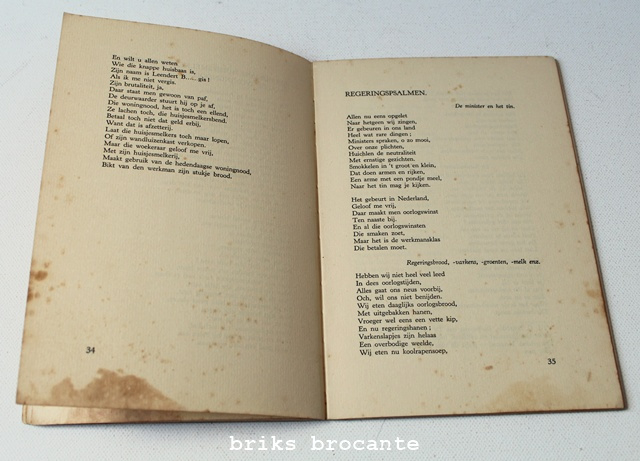 En wilt u allen weten
Wie die knappe huisbaas is,
Zijn naam is Leendert B.... gia!
Als ik me niet vergis.
Zijn brutaliteit, ja,
Daar staat men gewoon van paf,
De deurwaarder stuurt hij op je af,
Die woningnood, het is toch een ellend,
Ze lachen toch, die huisjesmelkersbend.
Betaal toch niet dat geld erbij,
Want dat is afzetterij.
Laat die huisjesmelkers toch maar kopen,
Of zijn wandluizenkast verkopen.
Maar die woekeraar geloof me vrij,
Met zijn huisjesmelkerij,
Maakt gebruik van de hedendaagse woningnood,
Bikt van den werkman zijn stukje brood.
34
REGERINGSPSALMEN.
De minister en het tin.
Allen nu eens opgelet
Naar hetgeen wij zingen,
Er gebeuren in ons land
Heel wat rare dingen;
Ministers spraken, o zo mooi,
Over onze plichten,
Huichlen de neutraliteit
Met ernstige gezichten.
Smokkelen in 't groot en klein,
Dat doen armen en rijken,
Een arme met een pondje meel,
Naar het tin mag je kijken.
Het gebeurt in Nederland,
Geloof me vrij,
Daar maakt men oorlogswinst
Ten naaste bij.
En al die oorlogswinsten
Die smaken zoet,
Maar het is de werkmansklas
Die betalen moet.
Regeringsbrood, -varkens, -groenten, -melk enz.
Hebben wij niet heel veel leed
In dees oorlogstijden,
Alles gaat ons neus voorbij,
Och, wil ons niet benijden.
Wij eten daaglijks oorlogsbrood,
Met uitgebakken hanen,
Vroeger wel eens een vette kip,
En nu regeringshanen;
Varkenslapjes zijn helaas
Een overbodige weelde,
Wij eten nu koolrapensoep,
35
briks brocante